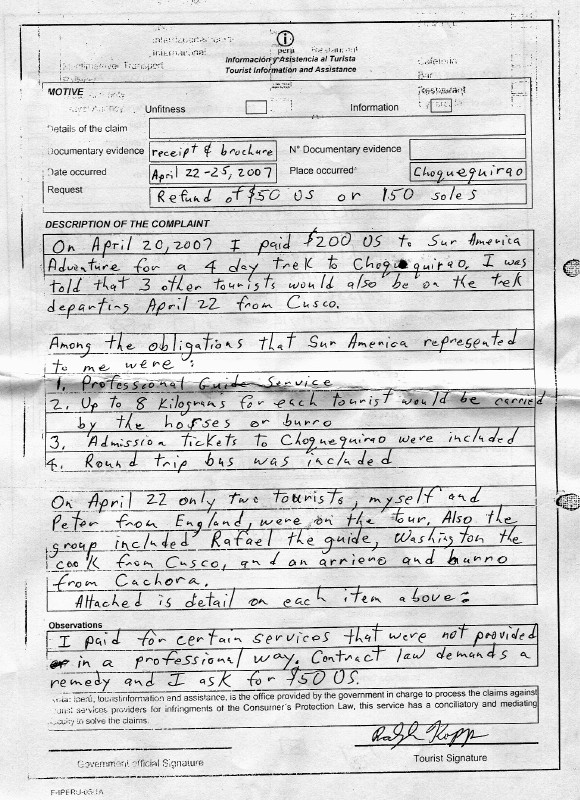 i
peru
Información y Asistencia al Turista
Tourist Information and Assistance
MOTIVE
Unfitness
Information
Details of the claim
Documentary evidence receipt & brochure N° Documentary evidence
Date occurred April 22-25, 2007 Place occurred Choquequirao
Request Refund of $50 US or 150 soles
DESCRIPTION OF THE COMPLAINT
On April 20, 2007 I paid $200 US to Sur America
Adventure for a 4 day trek to Choquequirao. I was
told that 3 other tourists would also be on the trek
departing April 22 from Cusco.
Among the obligations that Sur America represented
to me were:
1. Professional Guide Service
2. Up to 8 Kilograms for each tourist would be carried
by the horses or burro
3. Admission tickets to Choquequirao were included
4. Round trip bus was included
On April 22 only two tourists, myself and
Peter from England, were on the tour. Also the
group included Rafael the guide, Washington the
cook from Cusco, and an arriero and burro
from Cachora.
Attached is detail on each item above:
Observations
I paid for certain services that were not provided
in a professional way. Contract law demands a
remedy and I ask for $50 US.
iperú, tourist information and assistance, is the office provided by the government in charge to process the claims against
tourist services providers for infringments of the Consumer's Protection Law, this service has a conciliatory and mediating
to solve the claims.
Ralph Kopp
Government official Signature
Tourist Signature